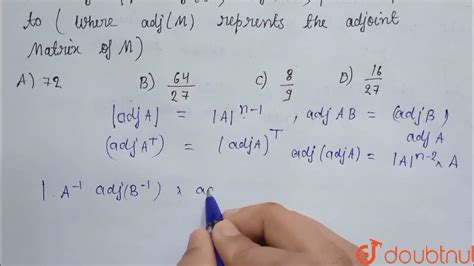 to ( where adj(M) reprents the adjoint
Matrix of M)
A) 72 B) 64/27 C) 8/9 D) 16/27
|adj A| = |A|^{n-1} , adj AB = (adj B)
adj A
(adj A^T) = (adj A)^T
adj (adj A) = |A|^{n-2} × A
| A^{-1} adj(B^{-1}) ×
doubtnut